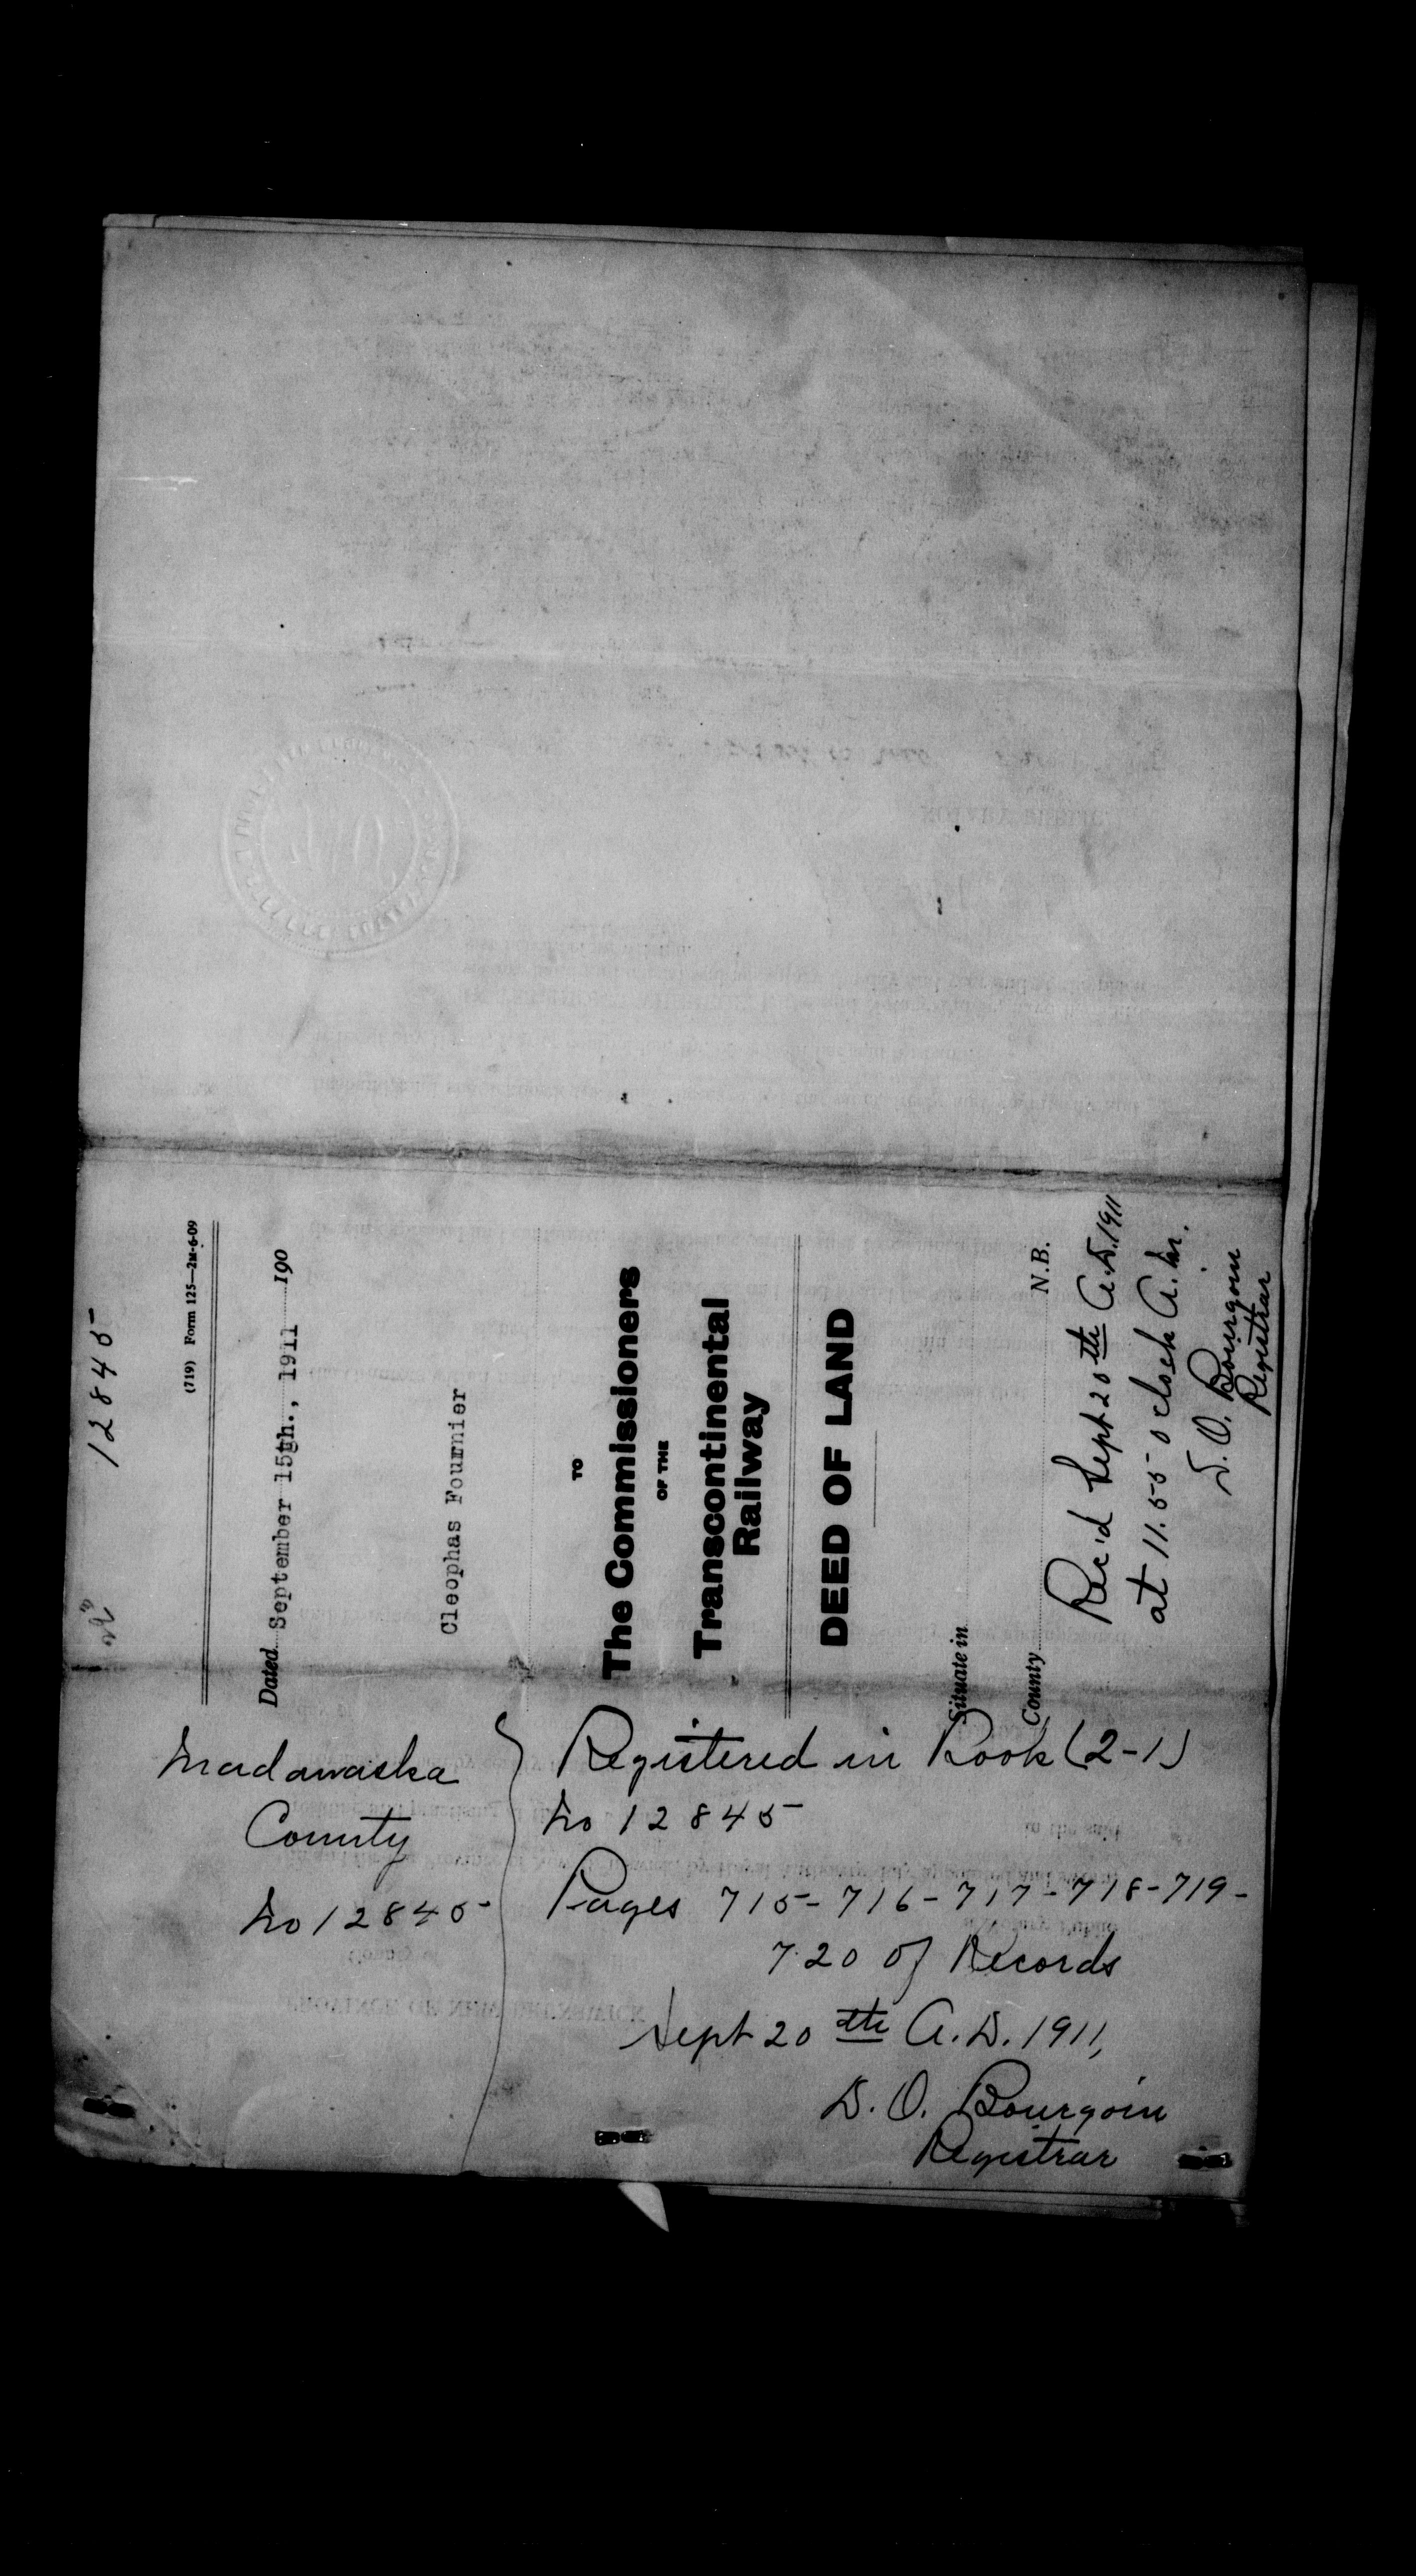 12845
(719) Form 125—2M-6-09
Dated September 15th., 1911 190
Cleophas Fournier
TO
The Commissioners
OF THE
Transcontinental
Railway
DEED OF LAND
Situate in
County N.B.
Rec'd Sept 20th A.D. 1911
at 11.55 o'clock A.m.
D. O. Bourgoin
Registrar
Madawaska
County
No 12845
Registered in Book (2-1)
No 12845
Pages 715-716-717-718-719-
720 of Records
Sept 20th A.D. 1911,
D. O. Bourgoin
Registrar